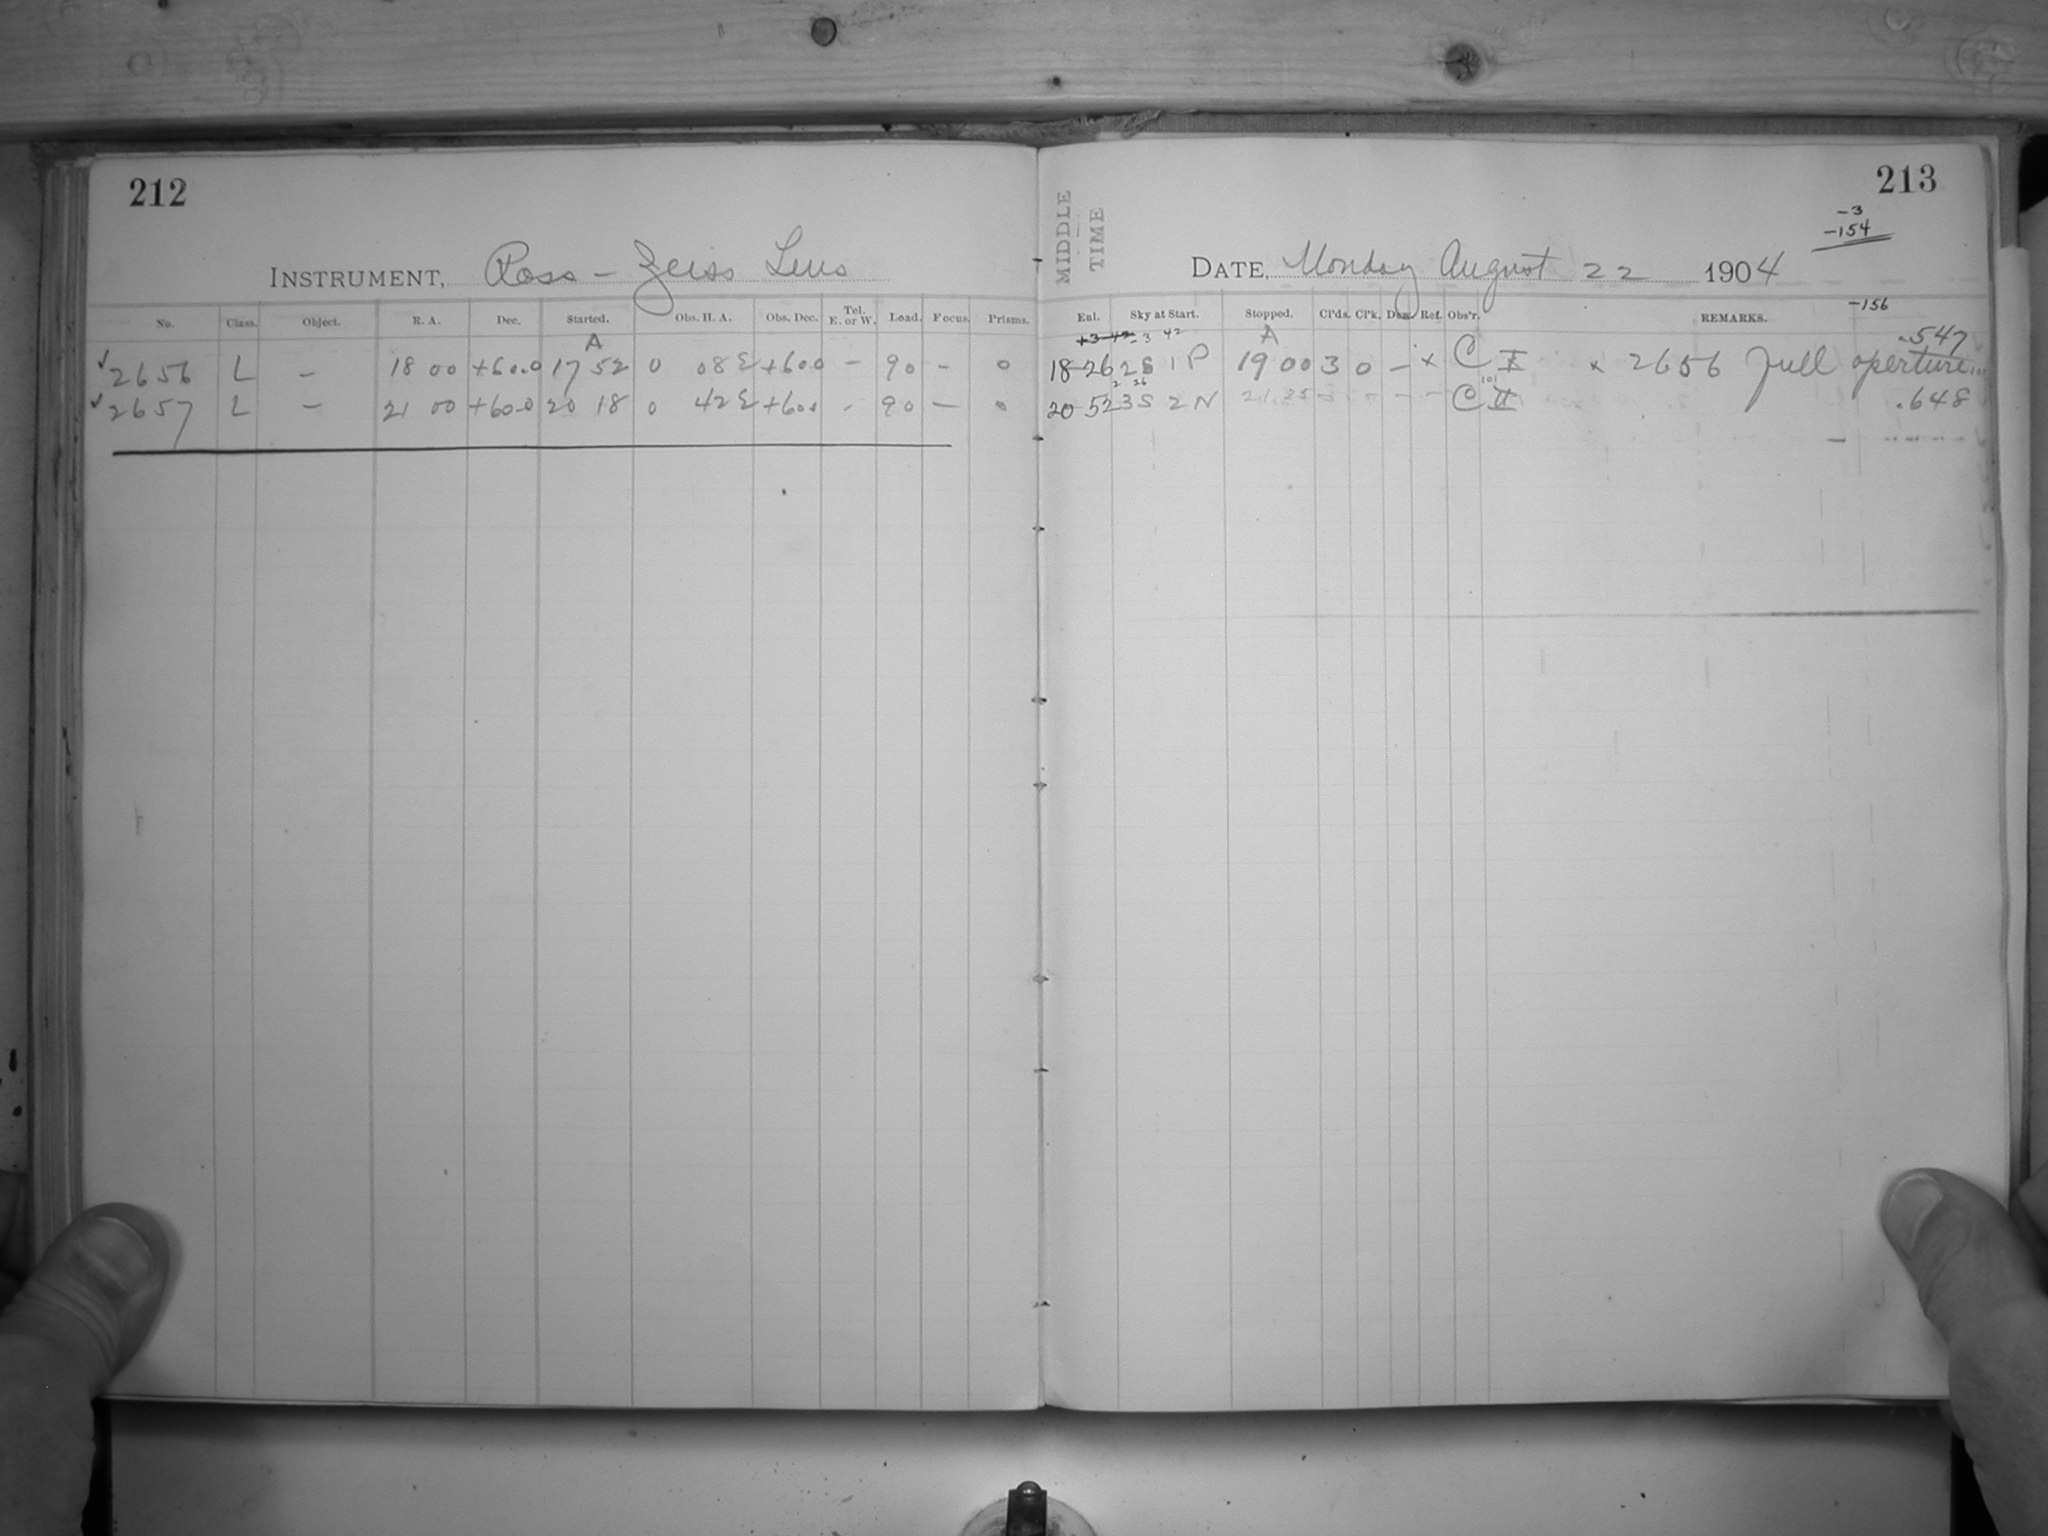 212
INSTRUMENT, Ross - Zeiss Lens
No. Class. Object. R. A. Dec. Started. Obs. H. A. Obs. Dec. Tel. E. or W. Load. Focus. Prisms.
A
✓ 2656 L - 18 00 +60.0 17 52 0 08 E +60.0 - 90 - 0
✓ 2657 L - 21 00 +60.0 20 18 0 42 E +60.0 - 90 - 0
213
-3
-154
MIDDLE TIME
DATE, Monday August 22 1904
-156
Enl. Sky at Start. Stopped. Cl'ds. Cl'k. Dew. Ref. Obs'r. REMARKS.
+3 42 -3 42 A .547
18 26 2S 1P 19 00 3 0 - x C II x 2656 Full aperture
2 26 101
20 52 3S 2N 21 25 - - C II .648